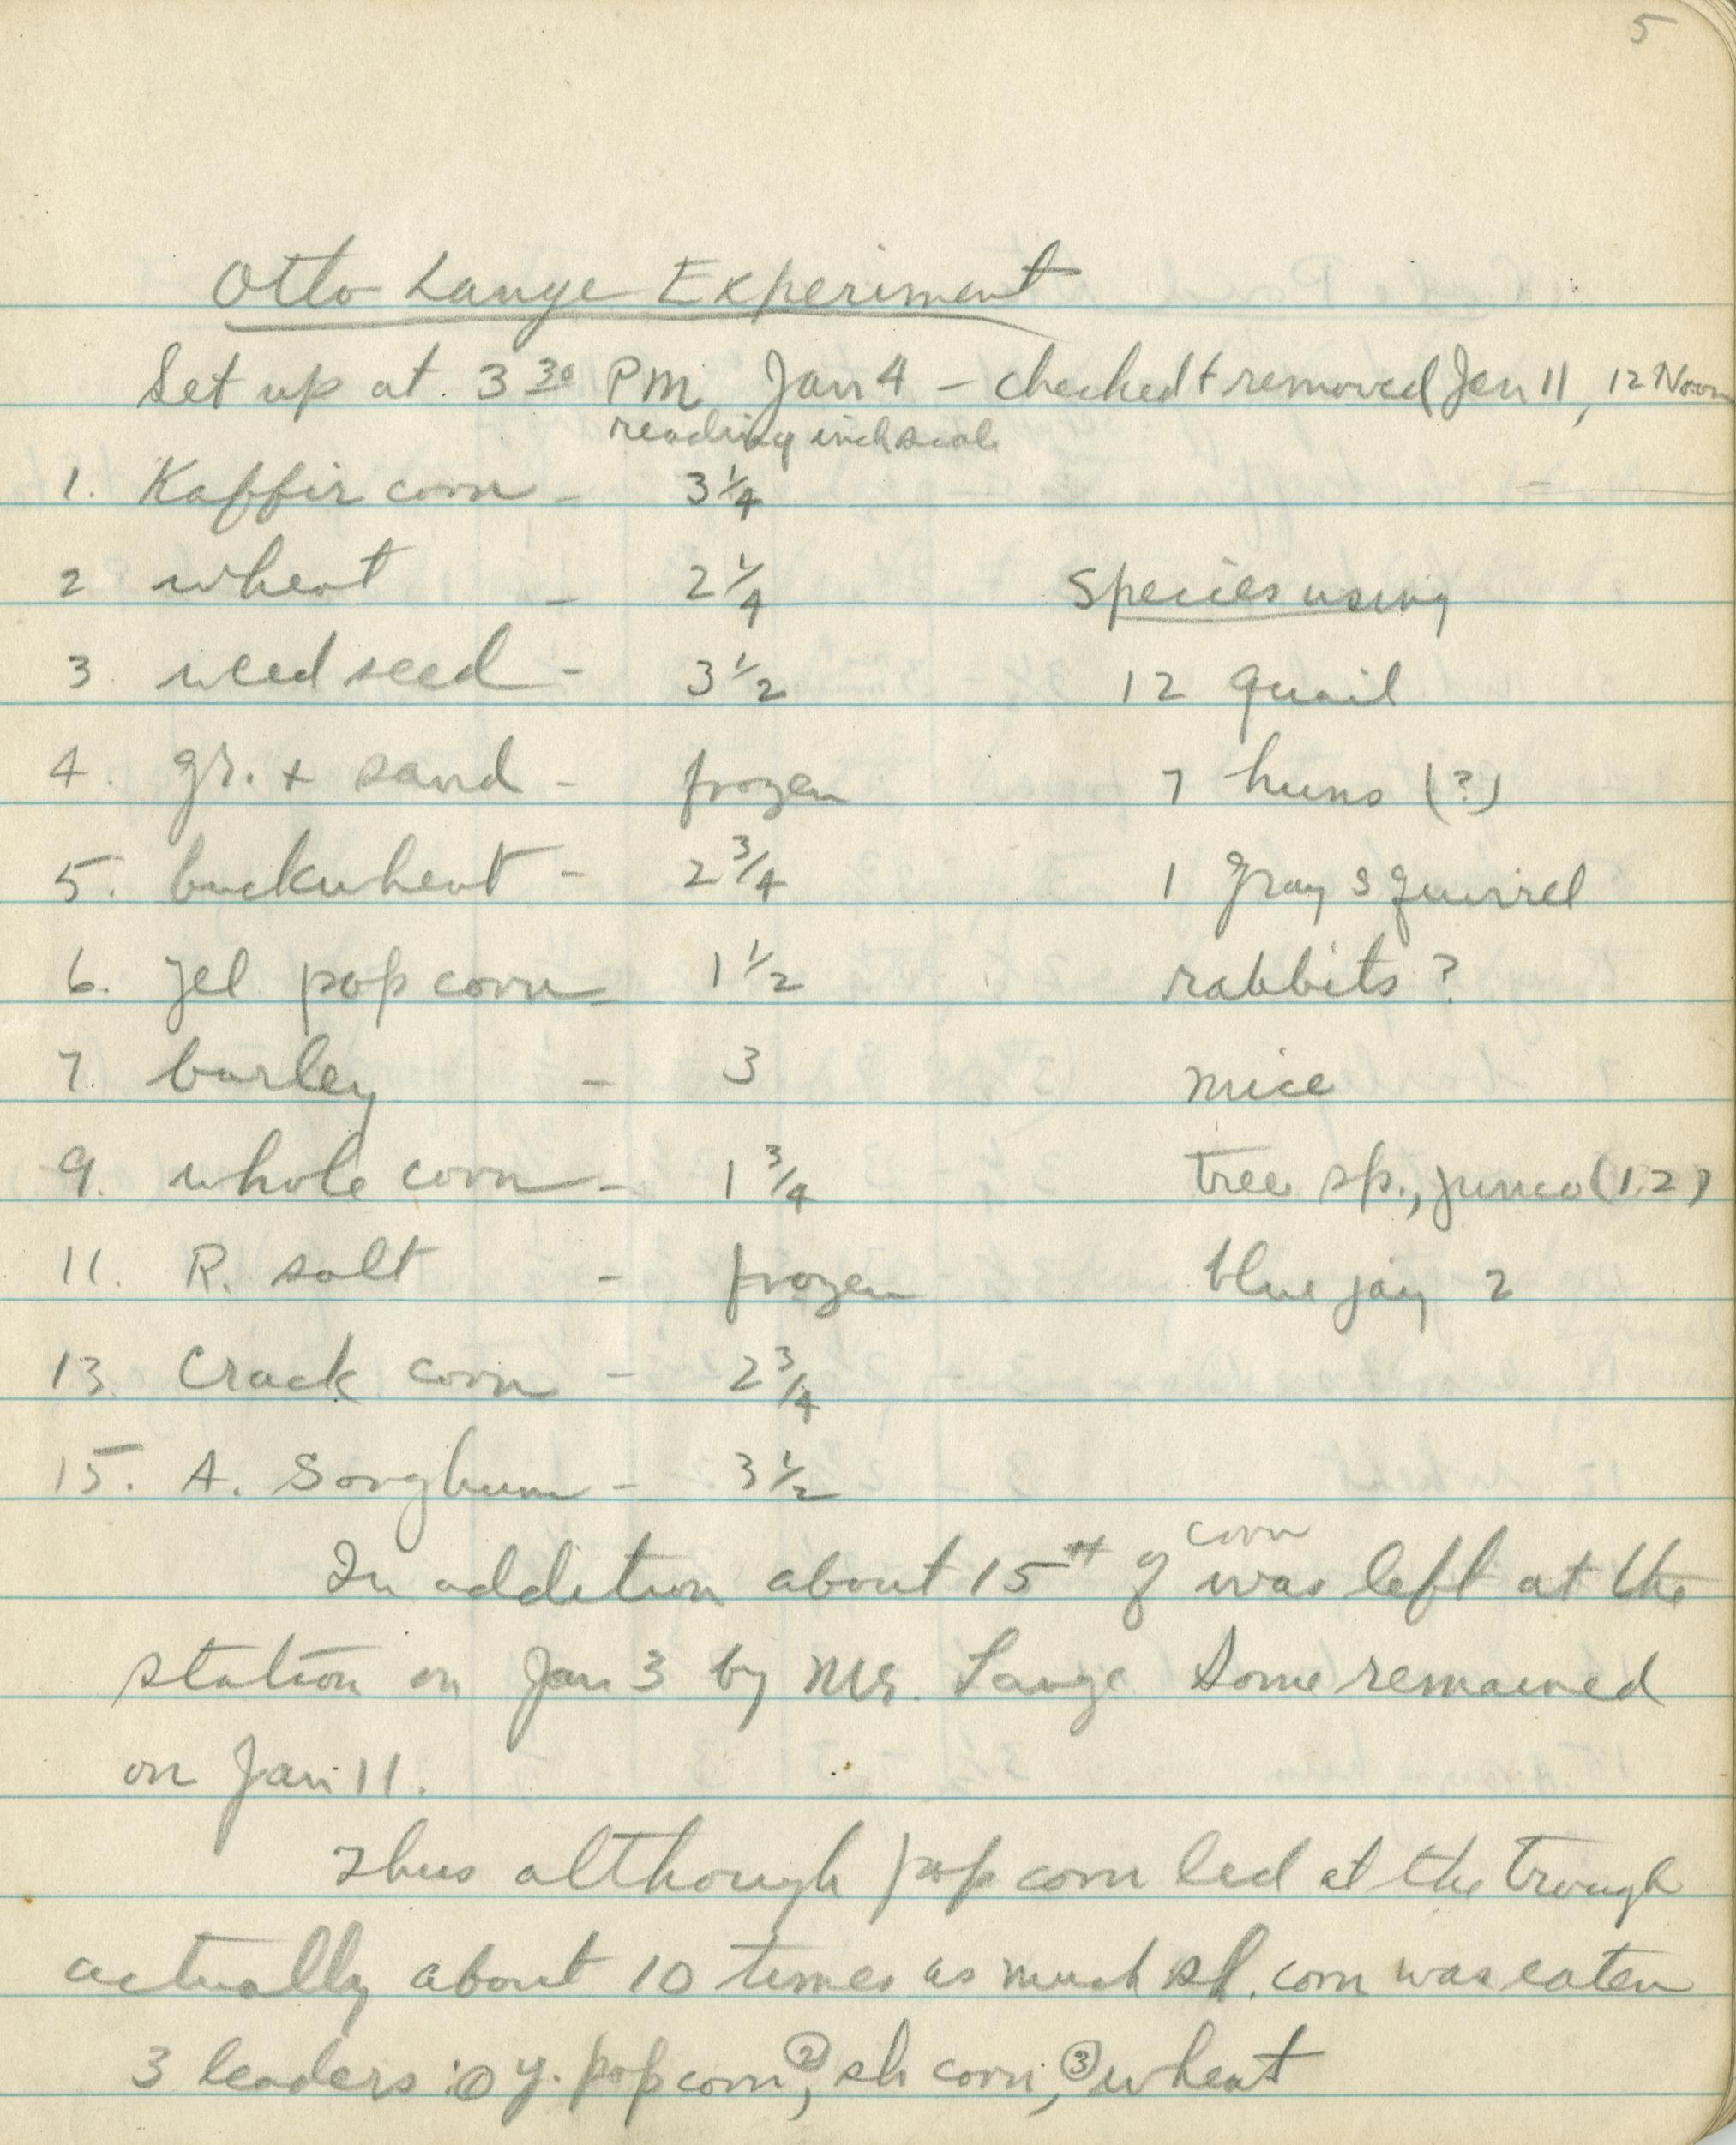 5
Otto Lange Experiment
Set up at 3 30 PM Jan 4 - checked + removed Jan 11, 12 Noon
reading inch scale
1. Kaffir corn - 3 1/4
2 wheat - 2 1/4
Species using
3 weed seed - 3 1/2
12 quail
4. gr. + sand - frozen
7 huns (?)
5. buckwheat - 2 3/4
1 gray squirrel
6. yel pop corn - 1 1/2
rabbits ?
7. barley - 3
mice
9. whole corn - 1 3/4
tree sp., junco (12)
11. R. salt - frozen
blue jay 2
13 Crack corn - 2 3/4
15. A. Sorghum - 3 1/2
corn
In addition about 15# of was left at the
station on Jan 3 by Mr. Lange Some remained
on Jan 11.
Thus although pop corn led at the trough
actually about 10 times as much sh. corn was eaten
3 leaders: ① y. pop corn, ② sh corn, ③ wheat